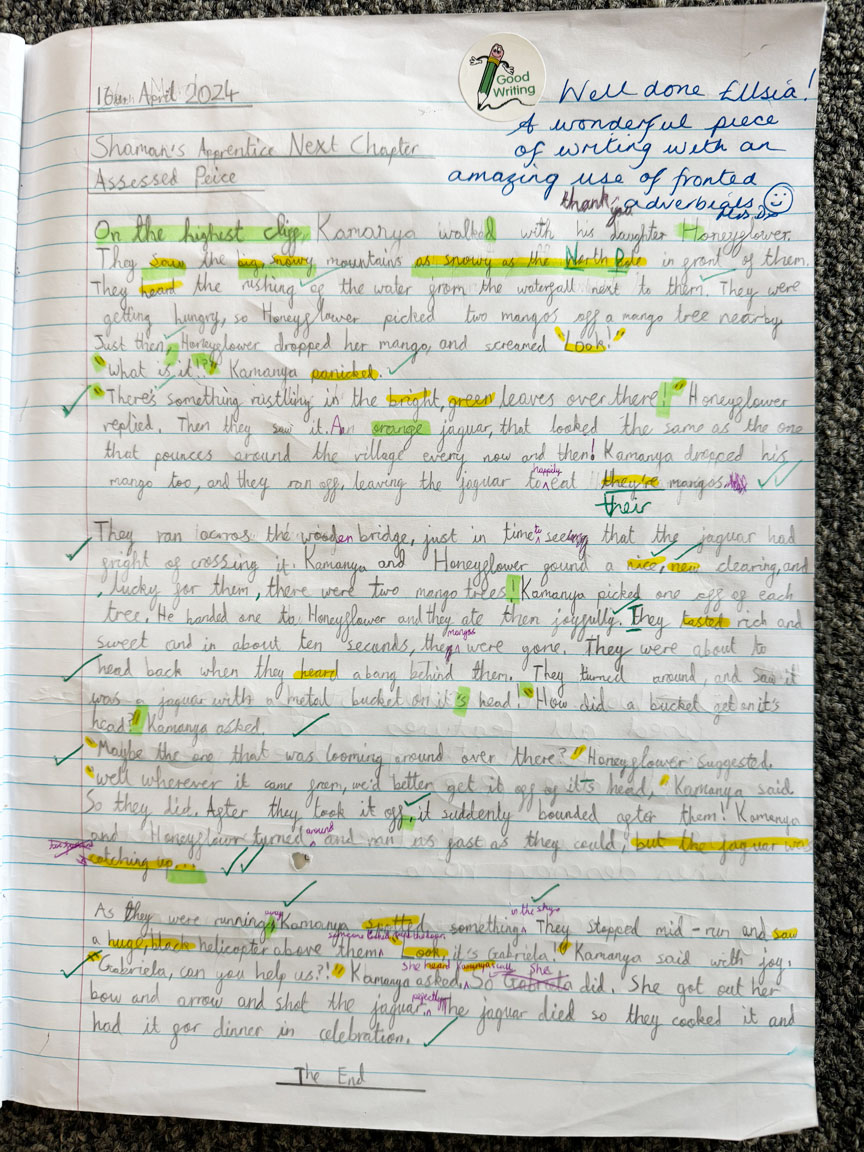 Good
Writing
Well done Ellsia!
A wonderful piece
of writing with an
amazing use of fronted
adverbials
thank you
16th April 2024
Shaman's Apprentice Next Chapter
Assessed Peice
On the highest cliff, Kamanya walked with his daughter Honeyflower.
They saw the big, snowy mountains as snowy as the North Pole in front of them.
They heard the rushing of the water from the waterfall next to them. They were
getting hungry, so Honeyflower picked two mangos off a mango tree nearby
Just then, Honeyflower dropped her mango, and screamed "Look!"
"What is it!?" Kamanya panicked.
"There's something rustling in the bright, green leaves over there!" Honeyflower
replied. Then they saw it. An orange jaguar, that looked the same as the one
that pounces around the village every now and then! Kamanya dropped his
mango too, and they ran off, leaving the jaguar to happily eat they're mangos.
their
They ran accross the wooden bridge, just in time to seeing that the jaguar had
fright of crossing it. Kamanya and Honeyflower found a nice, new clearing, and
, lucky for them, there were two mango trees! Kamanya picked one off of each
tree. He handed one to Honeyflower and they ate them joyfully. They tasted rich and
sweet and in about ten seconds, the mangos were gone. They were about to
head back when they heard a bang behind them. They turned around, and saw it
was a jaguar with a metal bucket on it's head! "How did a bucket get on it's
head?" Kamanya asked.
"Maybe the one that was looming around over there?" Honeyflower suggested.
"well wherever it came from, we'd better get it off of it's head," Kamanya said.
So they did. After they took it off, it suddenly bounded after them! Kamanya
and Honeyflower turned around and ran as fast as they could, but the jaguar was
catching up...
As they were running away, Kamanya spotted something in the sky. They stopped mid-run and saw
a huge, black helicopter above them. "Look, it's Gabriela!" Kamanya said with joy.
"Gabriela, can you help us?!" Kamanya asked. She heard Kamanya's call So She did. She got out her
bow and arrow and shot the jaguar perfectly. The jaguar died so they cooked it and
had it for dinner in celebration.
The End